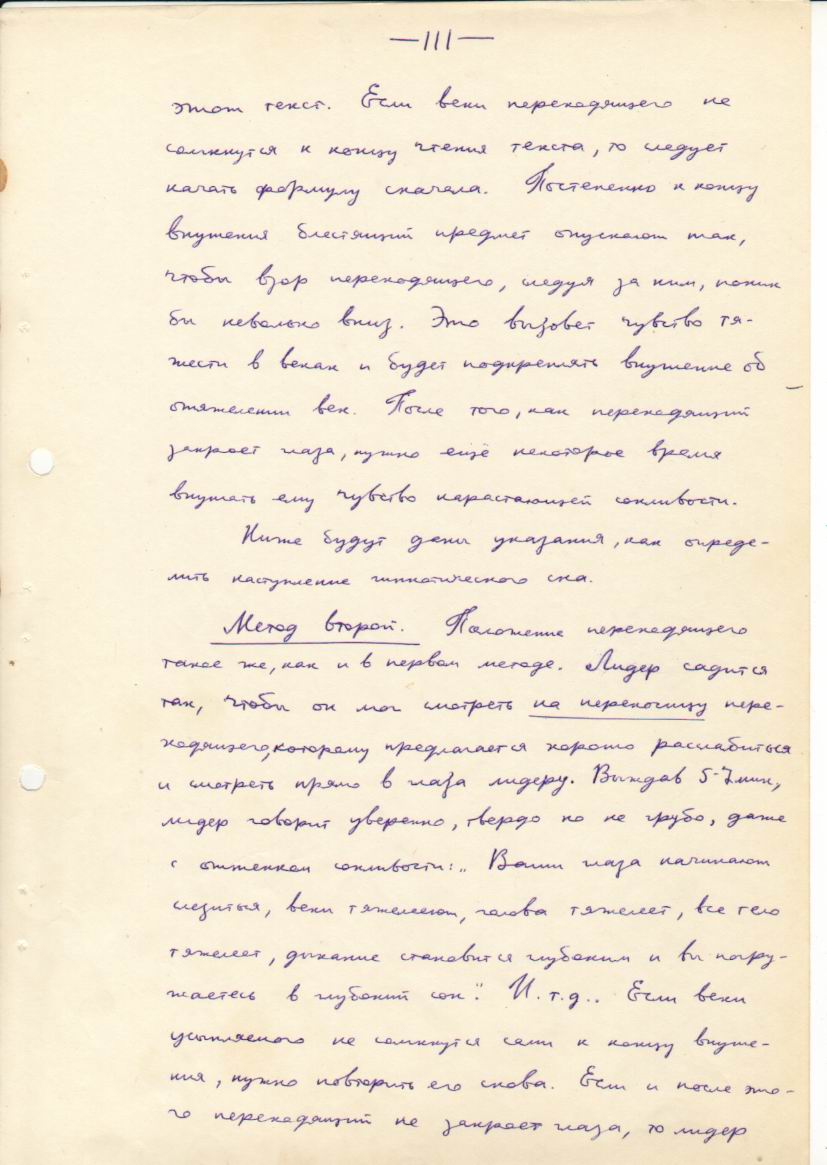 —111—
этот текст. Если веки переходящего не
сомкнутся к концу чтения текста, то следует
начать формулу сначала. Постепенно к концу
внушения блестящий предмет опускают так,
чтобы взор переходящего, следуя за ним, поник
бы невольно вниз. Это вызовет чувство тя-
жести в веках и будет подкреплять внушение об
отяжелении век. После того, как переходящий
закроет глаза, нужно ещё некоторое время
внушать ему чувство нарастающей сонливости.
Ниже будут даны указания, как опреде-
лить наступление гипнотического сна.
Метод второй. Положение переходящего
такое же, как и в первом методе. Лидер садится
так, чтобы он мог смотреть на переносицу пере-
ходящего, которому предлагается хорошо расслабиться
и смотреть прямо в глаза лидеру. Выждав 5-7 мин,
лидер говорит уверенно, твердо но не грубо, даже
с оттенком сонливости: „Ваши глаза начинают
слезиться, веки тяжелеют, голова тяжелеет, все тело
тяжелеет, дыхание становится глубоким и вы погру-
жаетесь в глубокий сон". И.т.д.. Если веки
усыпляемого не сомкнутся сами к концу внуше-
ния, нужно повторить его снова. Если и после это-
го переходящий не закроет глаза, то лидер